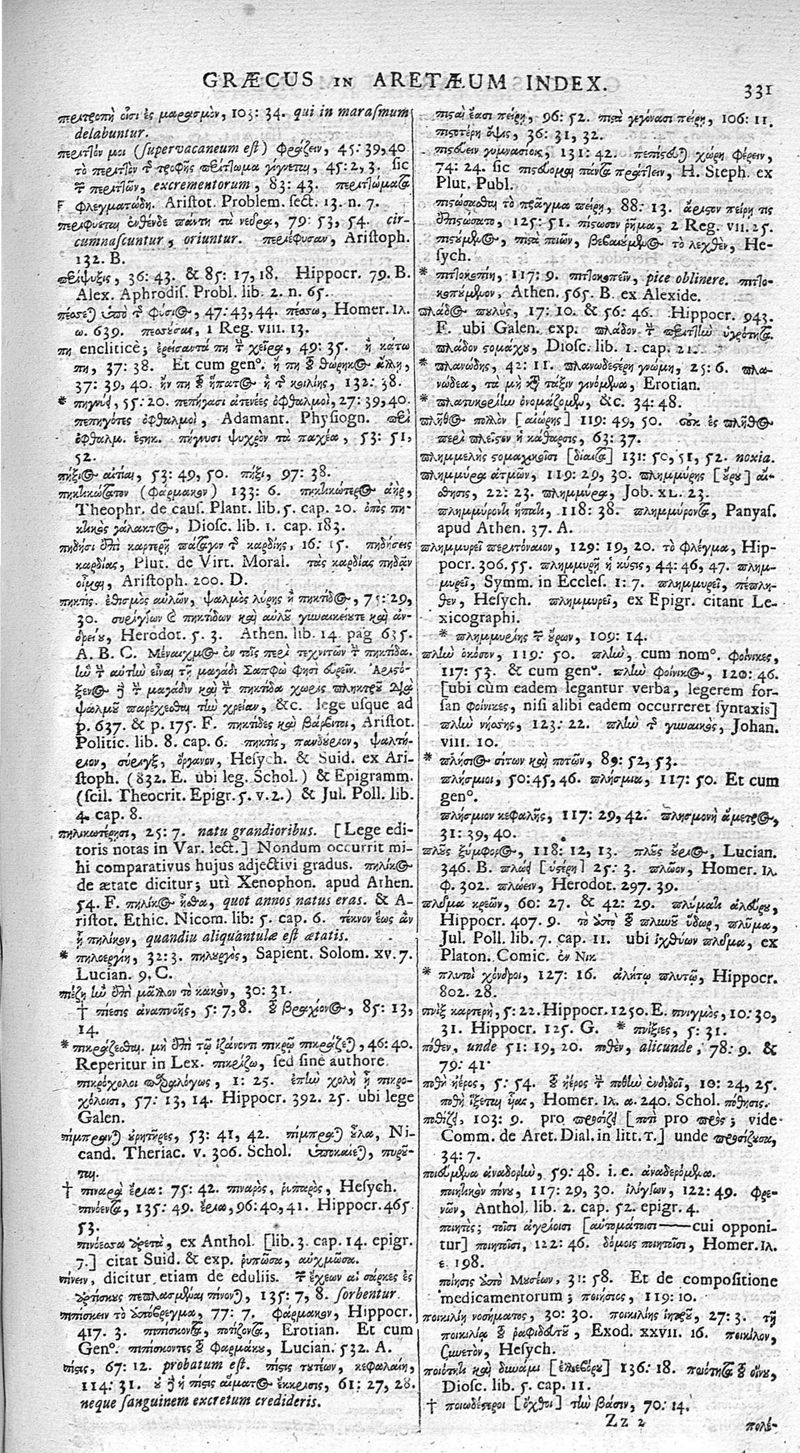 GRÆCUS IN ARETÆUM INDEX.
331
περιτροπὴ οἷσι ἐς μαρασμὸν, 103: 34. qui in marasmum
delabuntur.
περιττόν μοι (supervacaneum est) φράζειν, 45: 39, 40
τὸ περιττὸν τ τροφῆς περίττωμα γίγνεται, 45: 2, 3. sic
τ περιττῶν, excrementorum, 83: 43. περιττώματα
φλεγματώδη. Aristot. Problem. sect. 13. n. 7.
περιφύεται ἐνθένδε πάντη τὰ νεῦρα, 79: 53, 54. cir-
cumnascuntur, oriuntur. περιέφυσαν, Aristoph.
132. B.
περίψυξις, 36: 43. & 85: 17, 18. Hippocr. 79. B.
Alex. Aphrodis. Probl. lib. 2. n. 65.
47: 43, 44. πέσσω, Homer. Ιλ.
ω. 639. 1 Reg. viii. 13.
πη encliticè; ἐρείσαντά πη τ χεῖρα, 49: 35. ἢ κάτω
πη, 37: 38. Et cum genº. ἤ πη θώρηκος ἄλλη,
37: 39, 40. ἤν πη ἥπατος ἢ τ κοιλίης, 132: 38.
* πηγνύς, 55: 20. πεπήγασι ἀτενέες ὀφθαλμοὶ, 27: 39, 40.
πεπηγότες ὀφθαλμοὶ, Adamant. Physiogn. περὶ
ὀφθαλμ. πήγνυσι ψυχρὸν τὰ παχέα, 53: 51,
52.
πήξιος αἰτίαι, 53: 49, 50. πήξι, 97: 38.
πηκτικώτατον (φάρμακον) 133: 6. πηκτικώτερος ἀὴρ,
Theophr. de caus. Plant. lib. 5. cap. 20. ὀπὸς πη-
κτικὸς γάλακτος, Diosc. lib. 1. cap. 183.
πηδήσι ἐπὶ καρτερῇ πάταγον τ καρδίης, 16: 15. πηδήσεις
καρδίας, Plut. de Virt. Moral. τὰς καρδίας πηδᾶν
Aristoph. 200. D.
πηκτίς. ἐθισμὸς αὐλῶν, ψαλμὸς λύρης ἢ πηκτίδος, 75: 29,
30. συρίγγων ϗ πηκτίδων καὶ αὐλοῦ γυναικείου τε καὶ ἀν-
δρείου, Herodot. 5. 3. Athen. lib. 14. pag 635.
A. B. C. Μέναιχμος ἐν τοῖς περὶ τεχνιτῶν τ πηκτίδα.
Σαπφώ φησι εὑρεῖν. Ἀριστό-
ξενος τ μάγαδιν καὶ τ πηκτίδα χωρὶς πλήκτρου διὰ
ψαλμοῦ παρέχεσθαι τὴν χρείαν, &c. lege usque ad
p. 637. & p. 175. F. πηκτίδες καὶ βάρβιτοι, Aristot.
Politic. lib. 8. cap. 6. πηκτὶς, πανδούριον, ψαλτή-
ριον, σύριγξ, ὄργανον, Hesych. & Suid. ex Ari-
stoph. (832. E. ubi leg. Schol.) & Epigramm.
(scil. Theocrit. Epigr. 5. v. 2.) & Jul. Poll. lib.
4. cap. 8.
πηλικωτέρησι, 25: 7. natu grandioribus. [Lege edi-
toris notas in Var. lect.] Nondum occurrit mi-
hi comparativus hujus adjectivi gradus. πηλίκος
de ætate dicitur; uti Xenophon. apud Athen.
54. F. πηλίκος ἦσθα, quot annos natus eras. & A-
ristot. Ethic. Nicom. lib: 5. cap. 6. τέκνον ἕως ἂν
ᾖ πηλίκον, quandiu aliquantulæ est ætatis.
* πηλοεργίη, 32: 3. πηλουργὸς, Sapient. Solom. xv. 7.
Lucian. 9. C.
πιέζῃ ἐπὶ μᾶλλον τὸ κακὸν, 30: 31.
† πίεσις ἀναπνοῆς, 5: 7, 8. βραχίονος, 85: 13,
14.
* πικράζεσθαι. 46: 40.
Reperitur in Lex. πικρίζω, sed sine authore.
πικρόχολοι παραφλόγως, 1: 25. χολὴ ἢ πικρο-
χόλοισι, 57: 13, 14. Hippocr. 392. 25. ubi lege
Galen.
πίμπρανται οὐρητῆρες, 53: 41, 42. πίμπραται οὖλα, Ni-
cand. Theriac. v. 306. Schol. ὑποκαίεται, πυροῦ-
ται.
† πιναρὰ ἔρια: 75: 42. πιναρὸς, ῥυπαρὸς, Hesych.
πινόεντα, 135: 49. ἔρια, 96: 40, 41. Hippocr. 465
53.
ex Anthol. [lib. 3. cap. 14. epigr.
7.] citat Suid. & exp. ῥυπῶσα, αὐχμῶσα.
πίνειν, dicitur etiam de eduliis. τ ἔχεων αἱ σάρκες ἐς
ἀρτίσκους πεπλασμέναι πίνονται, 135: 7, 8. sorbentur.
πιπίσκειν τὸ ὑπόβρεγμα, 77: 7. φάρμακον, Hippocr.
417. 3. πιπίσκοντα, ποτίζοντα, Erotian. Et cum
Genº. πιπίσκοντες φαρμάκου, Lucian. 532. A.
πίστις, 67: 12. probatum est. πίστις τουτέων, κεφαλαίη,
114: 31. πίστις αἵματος ἔκκρισις, 61: 27, 28.
neque sanguinem excretum credideris.
πισταὶ ἔασι πείρῃ, 96: 52. πιστὰ γεγόνασι πείρῃ, 106: 11.
πιστοτέρη ὄψις, 36: 31, 32.
πιστεύειν γυμνασίοις, 131: 42. πεπίστευται χώρη φέρειν,
74: 24. sic πιστεύομαι πάντα πράττειν, H. Steph. ex
Plut. Publ.
πιστώσασθαι τὸ πρᾶγμα πείρῃ, 88: 13. ἄριστον πείρῃ τις
ἐπιστώσατο, 125: 51. πίστωσον ῥῆμα, 2 Reg. vii. 25.
πιστούμενος, πιστὰ ποιῶν, βεβαιούμενος τὸ λεχθὲν, He-
sych.
* πιττοκοπίη, 117: 9. πιττοκοπεῖν, pice oblinere. πιττο-
κοπούμενον, Athen. 565. B. ex Alexide.
πλάδος πουλὺς, 17: 10. & 56: 46. Hippocr. 943.
F. ubi Galen. exp. πλάδον. τ περιττὴν ὑγρότητα.
πλάδον στομάχου, Diosc. lib. 1. cap. 21.
* πλανώδης, 42: 11. πλανωδεστέρη γνώμη, 25: 6. πλα-
νώδεα, τὰ μὴ κατὰ τάξιν γινόμενα, Erotian.
* πλατυκορίην ὀνομάζομεν, &c. 34: 48.
πλῆθος πολλὸν [αἰώρης] 119: 49, 50. οὐκ ἐς πλῆθος
περὶ πλεῖστον ἡ κάθαρσις, 63: 37.
πλημμελὴς στομαχικοῖσι [δίαιτα] 131: 50, 51, 52. noxia.
πλημμύρα ἀτμῶν, 119: 29, 30. πλημμύρης [οὔρου] αἴ-
σθησις, 22: 23. πλημμύρα, Job. xl. 23.
πλημμύρονθι ἥπατι, 118: 38. πλημμύροντα, Panyas.
apud Athen. 37. A.
πλημμυρεῖ περιτόναιον, 129: 19, 20. τὸ φλέγμα, Hip-
pocr. 306. 55. πλημμυρῇ ἡ κύστις, 44: 46, 47. πλημ-
μυρεῖ, Symm. in Eccles. 1: 7. πλημμυρεῖ, πέπλη-
θεν, Hesych. πλημμυρεῖ, ex Epigr. citant Le-
xicographi.
* πλημμυρίης τ οὔρων, 109: 14.
πλὴν ὁκόσον, 119: 50. πλὴν, cum nomº. φοίνικες,
117: 53. & cum genº. πλὴν φοίνικος, 120: 46.
[ubi cùm eadem legantur verba, legerem for-
san φοίνικες, nisi alibi eadem occurreret syntaxis]
πλὴν νήστης, 123: 22. πλὴν τ γυναικὸς, Johan.
viii. 10.
* πλήσιος σίτων καὶ ποτῶν, 89: 52, 53.
πλήσμιοι, 50: 45, 46. πλήσμια, 117: 50. Et cum
genº.
πλήσμιον κεφαλῆς, 117: 29, 42. πλησμονὴ ἄμετρος,
31: 39, 40.
πλοῦς ξύμφορος, 118: 12, 13. πλοῦς οὔριος, Lucian.
346. B. πλώει [ὑστέρη] 25: 3. πλῶον, Homer. Ιλ.
φ. 302. πλώειν, Herodot. 297. 39.
πλύμα κρεῶν, 60: 27. & 42: 29. πλύματι ἀλεύρου,
Hippocr. 407. 9. τὸ ὑπὸ ὕδωρ, πλῦμα,
Jul. Poll. lib. 7. cap. 11. ubi ἰχθύων πλύμα, ex
Platon. Comic. ἐν Νικ
* πλυτοὶ χόνδροι, 127: 16. ἀλήτῳ πλυτῷ, Hippocr.
802. 28.
πνὶξ καρτερὴ, 5: 22. Hippocr. 1250. E. πνιγμὸς, 10: 30,
31. Hippocr. 125. G. * πνίξιες, 5: 31.
πόθεν, unde 51: 19, 20. ποθὲν, alicunde, 78: 9. &
79: 41
ποθὴ ἠέρος, 5: 54. ἠέρος τ ποθὴν ἐνδιδοῖ, 10: 24, 25.
ποθὴ ἵξεται υἷας, Homer. Ιλ. α. 240. Schol. πόθησις.
ποθίζει, 103: 9. pro προσίζει [ποτὶ pro πρὸς; vide
Comm. de Aret. Dial. in litt. T.] unde προσίζουσα,
34: 7.
59: 48. i. e. ἀναδερόμενα.
ποιητικὸν πόνου, 117: 29, 30. ἰλίγγων, 122: 49. φρε-
νῶν, Anthol. lib. 2. cap. 52. epigr. 4.
ποιητὸς; τοῖσι ἀγρίοισι [αὐτομάτοισι——cui opponi-
tur] ποιητοῖσι, 122: 46. δόμοις ποιητοῖσι, Homer. Ιλ.
ε. 198.
ποίησις ὑπὸ Μυσέων, 31: 58. Et de compositione
medicamentorum; ποιήσιος, 119: 10.
ποικιλίη νοσήματος, 30: 30. ποικιλίης ἰητροῦ, 27: 3. τῇ
ποικιλίᾳ ῥαφιδευτοῦ, Exod. xxvii. 16. ποικίλον,
ξυνετὸν, Hesych.
ποιότητι καὶ δυνάμι [ἐλλεβόρου] 136: 18. ποιότητα οἴνου,
Diosc. lib. 5. cap. 11.
† ποιωδέστεροι [ὄχθοι] τὴν βάσιν, 70: 14.
Zz 2
πολέ-